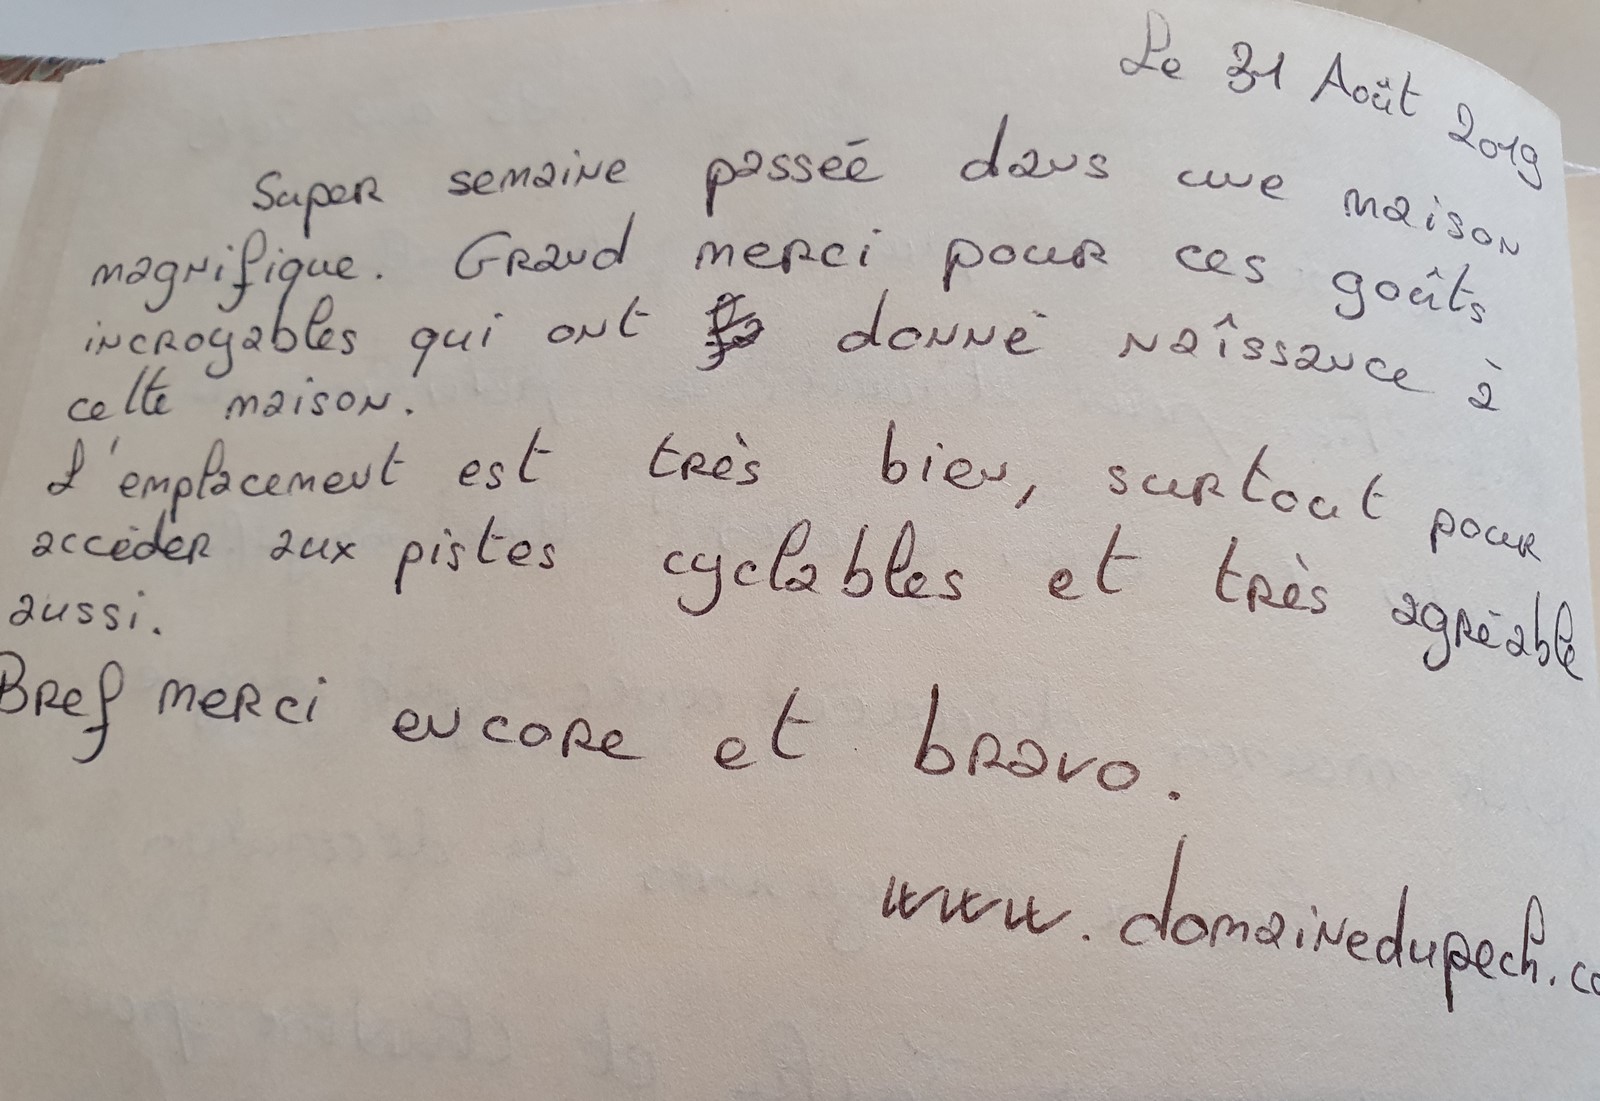 Le 31 Août 2019
Super semaine passée dans une maison
magnifique. Grand merci pour ces goûts
incroyables qui ont donné naîssance à
cette maison.
L'emplacement est très bien, surtout pour
accéder aux pistes cyclables et très agréable
aussi.
Bref merci encore et bravo.
www.domainedupech.co